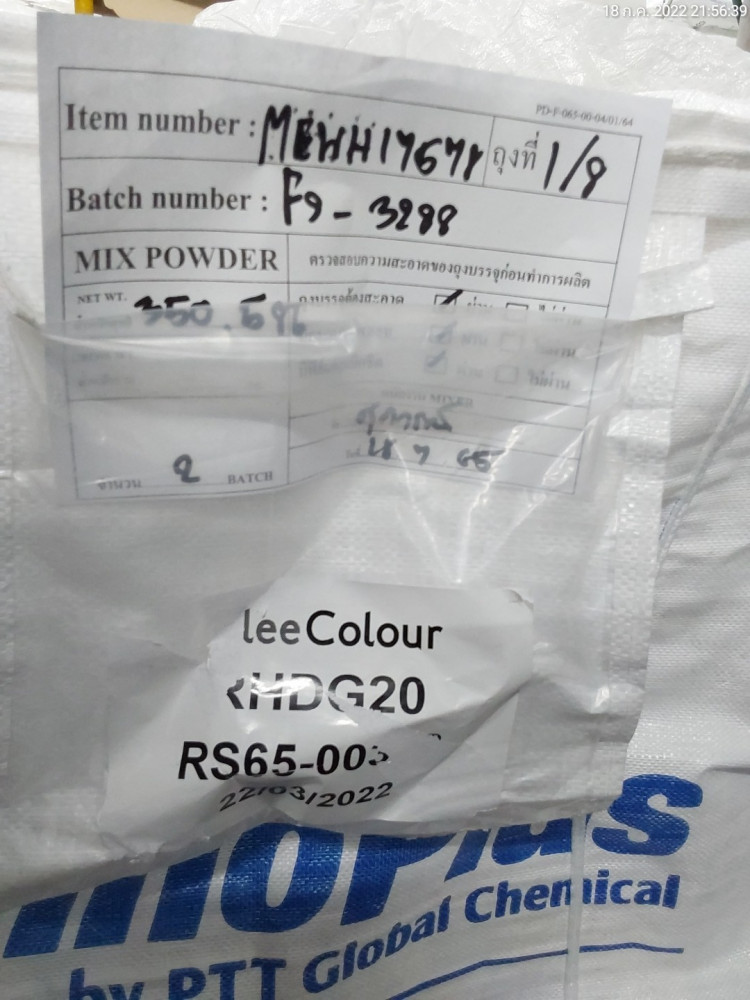 18 ก.ค. 2022 21:56:39
PD-F-065-00-04/01/64
Item number : MEWH17678 ถุงที่ 1/8
Batch number : F9-3288
MIX POWDER ตรวจสอบความสะอาดของถุงบรรจุก่อนทำการผลิต
NET WT. 350.596 ถุงบรรจุต้องสะอาด ผ่าน ไม่ผ่าน
ผ่าน ไม่ผ่าน
ผ่าน ไม่ผ่าน
MIXER
จำนวน 2 BATCH
lee Colour
HDG20
RS65-003
22/03/2022
Plus
by PTT Global Chemical